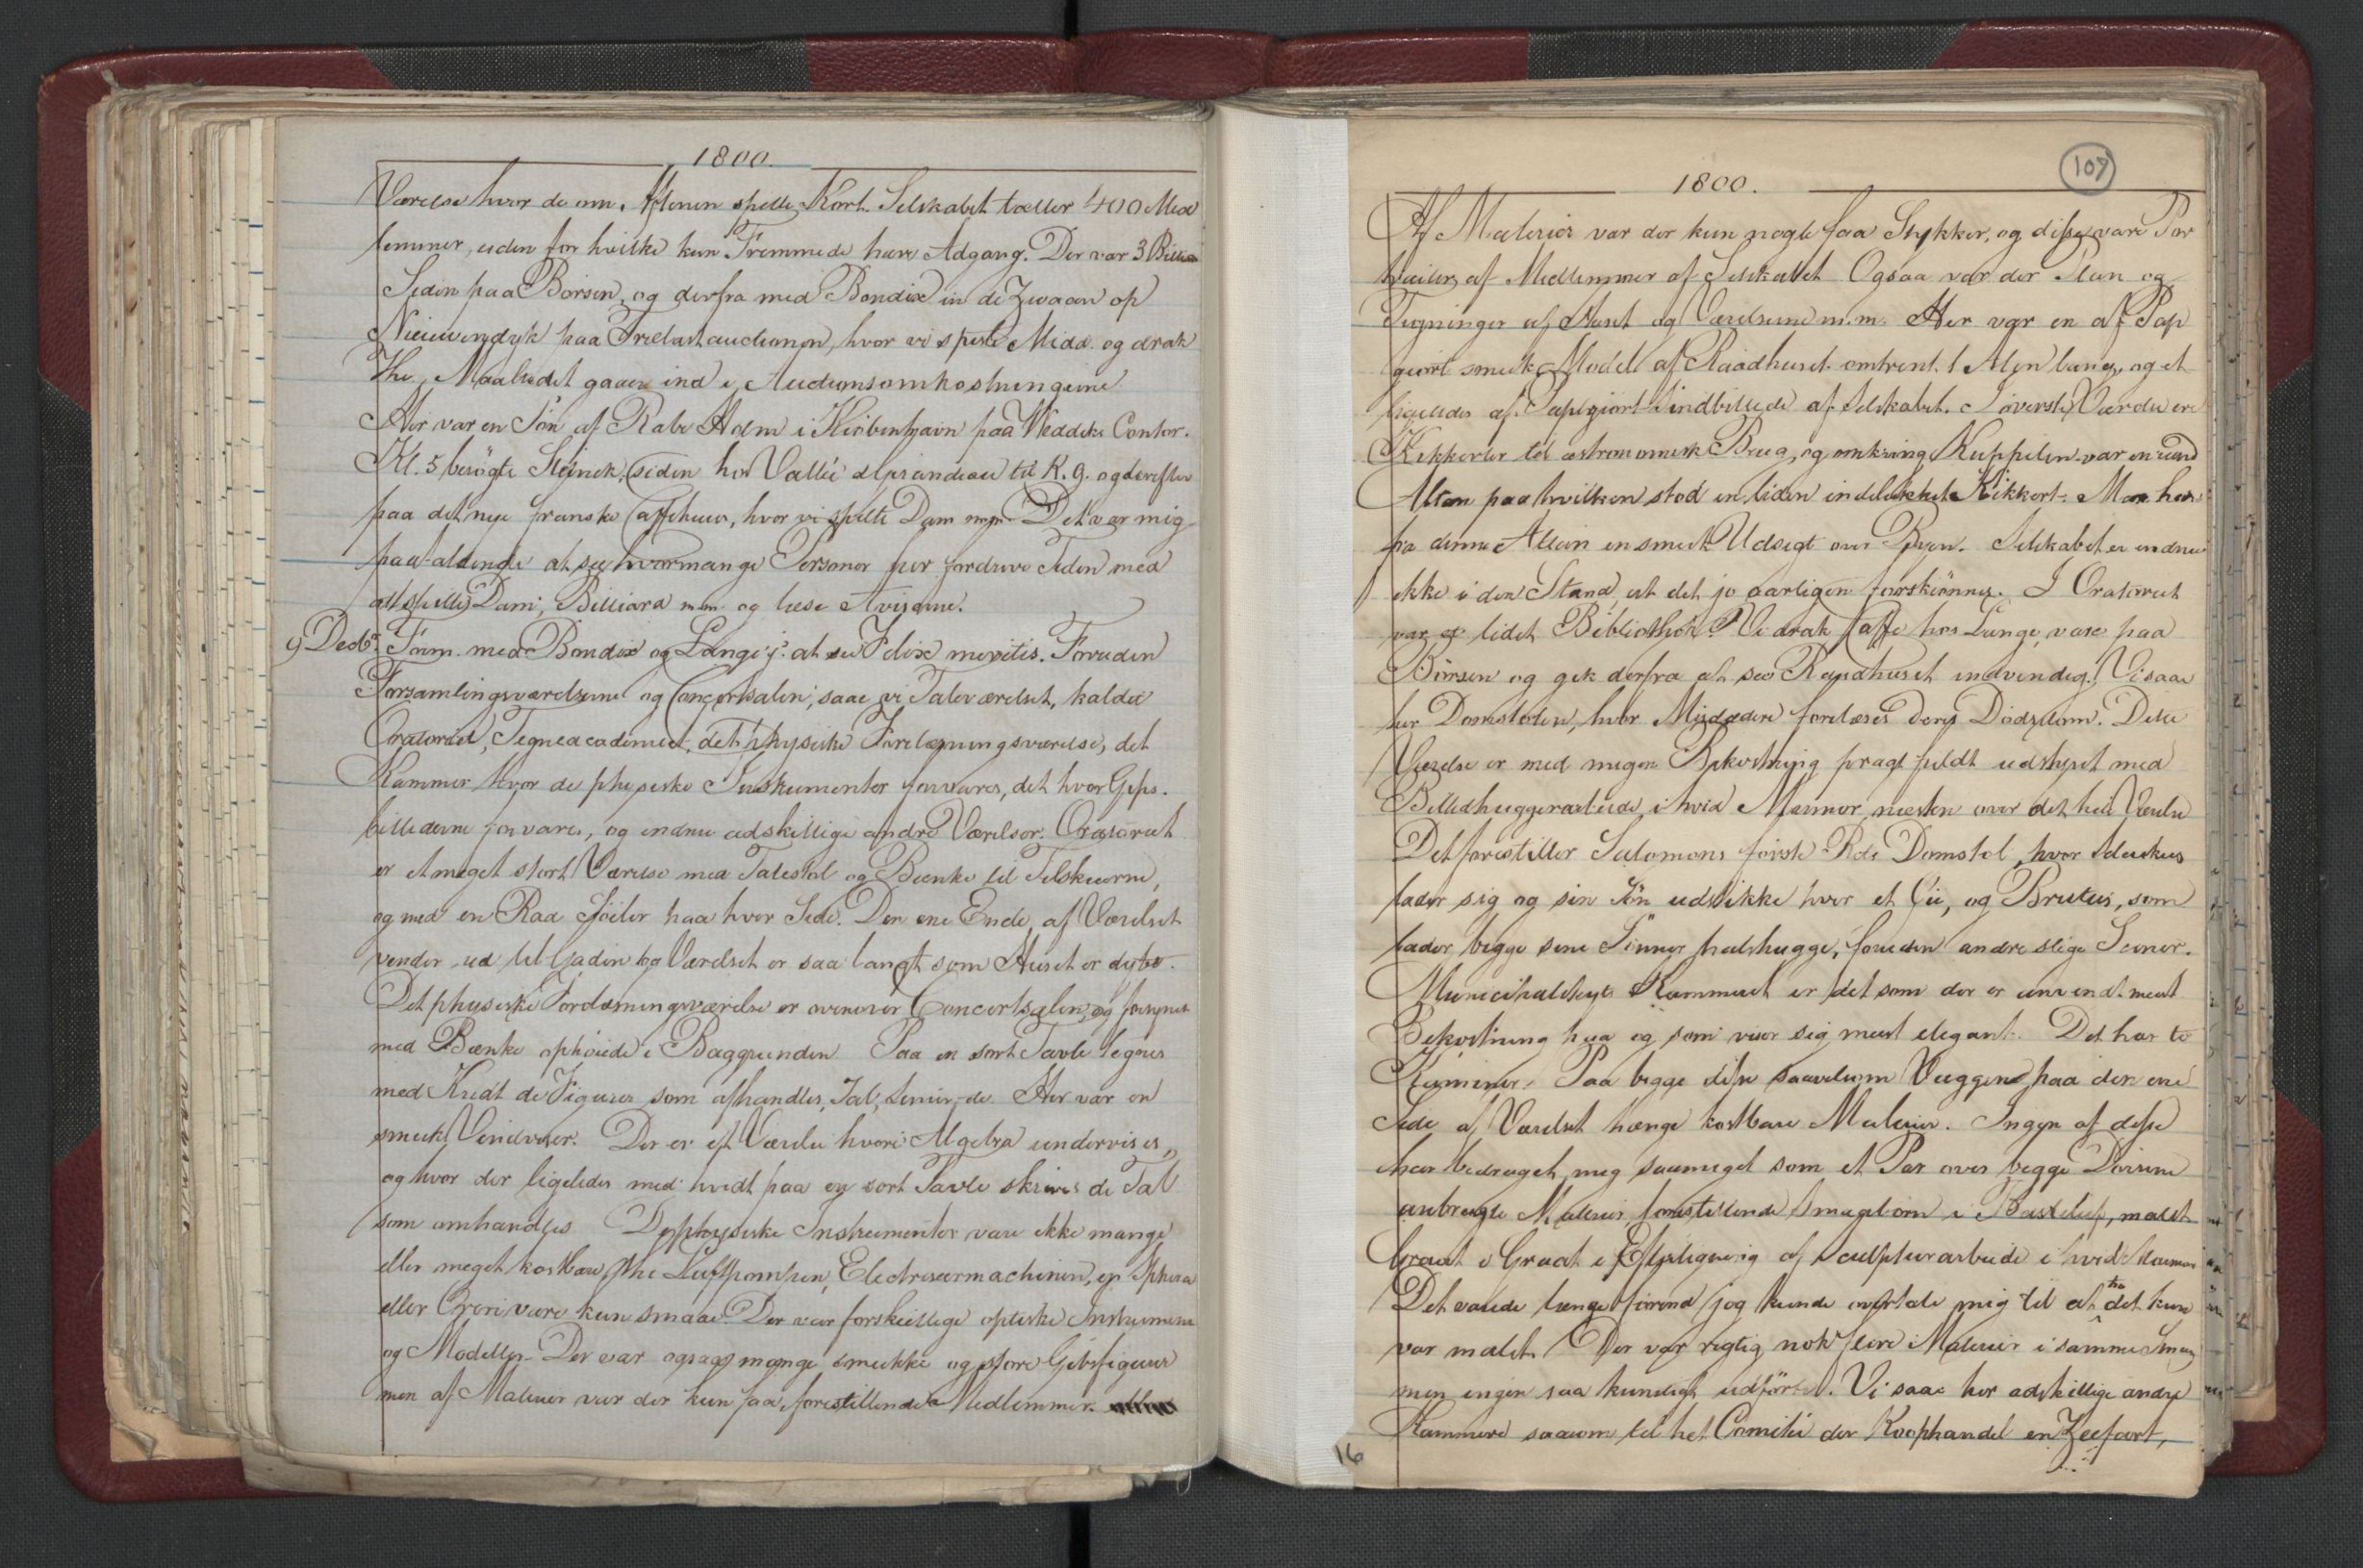 1800.
Værelse hvor de om Aftenen spille Kort. Selskabet tæller 400 Med
lemmer, uden for hvilke kun Fremmede have Adgang. Der var 3 Billia
Siden paa Börsen, og derfra med Bondix in de Zwaan op
Nieuwendyk paa Trelastauctionen, hvor vi spiste Midd. og drak
The. Maaltidet gaaer ind i Auctionsomkostningerne
Her var en Sön af Rabe Holm i Kiöbenhavn paa Weddiks Contor.
Kl. 5 besögte Steinek, siden hos Vallée alparandeau til K. 9. og derefter
paa det nye franske Caffehuus, hvor vi spilte Dam mm. Det var mig
paafaldende at see hvormange Personer her fordrive Tiden med
at spille Dam, Billiard m.m. og læse Aviserne.
9 Decbr. Form. med Bondix og Lange j: at see Felix meritis. Foruden
Forsamlingsværelserne og Concertsalen, saae vi Taleværelset, kaldet
Oratoriet, Tegneacademiet, det physiske Forelæsningsværelse, det
Kammer hvor de physiske Instrumenter forvares, det hvor Gips-
billederne forvares, og endnu adskillige andre Værelser. Oratoriet
er et meget stort Værelse med Talestol og Bænke til Tilskuerne,
og med en Rad Söiler paa hver Side. Den ene Ende af Værelset
vender ud til Gaden og Værelset er saa langt som Huset er dybt.
Det physiske Forelæsningsværelse er ovenover Concertsalen, og forsynet
med Bænke ophöiede i Baggrunden. Paa en sort Tavle tegnes
med Kridt de Figurer som afhandles, Tal, Linier, de. Her var en
smuk Vindviser. Der er et Værelse hvori Algebra undervises,
og hvor der ligeledes med hvidt paa en sort Tavle skrives de Tal
som omhandles. De physiske Instrumenter vare ikke mange
eller meget kostbare, thi Luftpompen, Electriseermachinen, en Sphæra
eller Oreri vare kun smaae. Der var forskiellige optiske Instrumenter
og Modeller. Der var ogsaa mange smukke og store Gibsfigurer
men af Malerier var der kun faa, forestillende Medlemmer.
107
1800.
Af Malerier var der kun nogle faa Stykker, og disse vare Por
traiter af Medlemmer af Selskabet. Ogsaa var der Plan og
Tegninger af Huset og Værelserne m.m. Her var en af Pap
giort smuk Model af Raadhuset omtrent 1 Alen lang, og et
ligeledes af Pap giort Sindbillede af Selskabet. I överste Værelse ere
Kikkerter til astronomisk Brug, og omkring Kuppelen var en rund
Altan paa hvilken stod en liden indelukket Kikkert. Man har
fra denne Altan en smuk Udsigt over Byen. Selskabet er endnu
ikke i den Stand, at det jo aarligen forskiönnes. I Oratoriet
var et lidet Bibliothek. Vi drak Caffe hos Lange, vare paa
Börsen og gik derfra at see Raadhuset indvendig. Vi saae
her Domstolen, hvor Misdædere forelæses deres Dödsdom. Dette
Værelse er med megen Bekostning pragtfuldt udstyret med
Billedhuggerarbeide i hvid Marmor næsten over det hele Værelse
Det forestiller Salomons förste Rets Domstol, hvor Seleukus
lader sig og sin Sön udstikke hver et Öie, og Brutus, som
lader begge sine Sönner halshugge, foruden andre slige Scener.
Municipalitets Kammeret er det som der er anvendt meest
Bekostning paa og som viser sig meest elegant. Det har to
Kaminer. Paa begge disse saavelsom Væggene paa den ene
Side af Værelset hænge kostbare Malerier. Ingen af disse
har bedraget mig saameget som et Par over begge Dörrene
anbragte Malerier, forestillende Smaabörn i Basrelief, malet
Graat i Graat i Efterligning af Sculpturarbeide i hvidt Marmor
Det varede længe förend jeg kunde overtale mig til at troe det kun
var malet. Der var rigtig nok flere Malerier i samme Smag
men ingen saa kunstigt udfört. Vi saae her adskillige andre
Kammere saasom til het Comitéi der Koophandel en Zeefart,
16